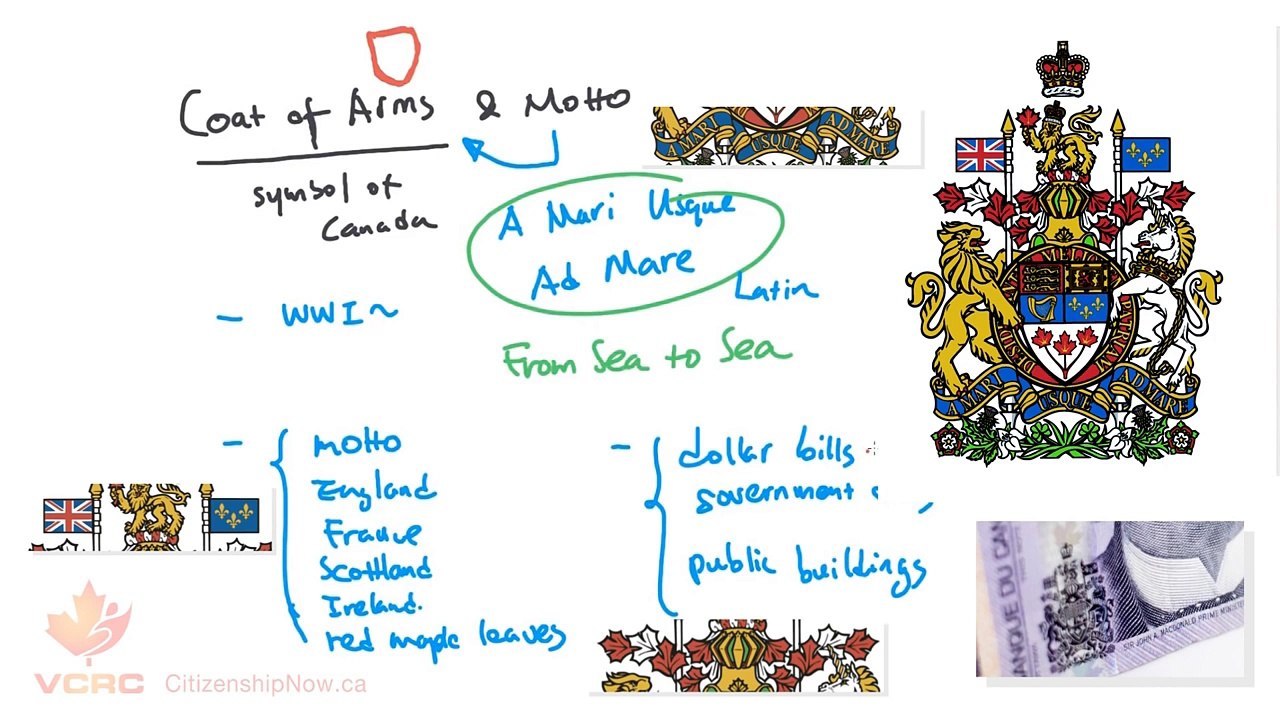 Coat of Arms & Motto
symbol of
Canada
A MARI USQUE AD MARE
A Mari Usque
Ad Mare
Latin
From Sea to Sea
- WWI~
- motto
England
France
Scottland
Ireland.
red maple leaves
- dollar bills
government
public buildings
A MARI USQUE AD MARE
DESIDERANTES MELIOREM PATRIAM
ANQUE DU CAN
SIR JOHN A. MACDONALD PRIME MINISTE
VCRC CitizenshipNow.ca